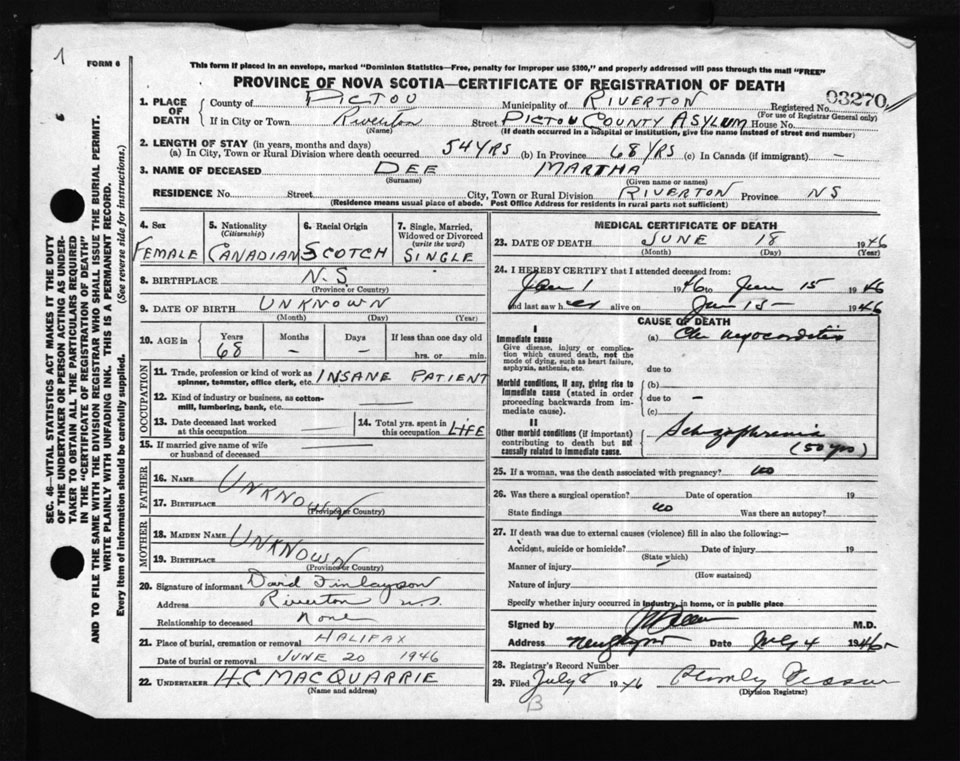 1
FORM 6
This form if placed in an envelope, marked "Dominion Statistics—Free, penalty for improper use $300," and properly addressed will pass through the mail "FREE"
PROVINCE OF NOVA SCOTIA—CERTIFICATE OF REGISTRATION OF DEATH
03270
SEC. 46—VITAL STATISTICS ACT MAKES IT THE DUTY
OF THE UNDERTAKER OR PERSON ACTING AS UNDER-
TAKER TO OBTAIN ALL THE PARTICULARS REQUIRED
IN THE "CERTIFICATE OF REGISTRATION OF DEATH"
AND TO FILE THE SAME WITH THE DIVISION REGISTRAR WHO SHALL ISSUE THE BURIAL PERMIT.
WRITE PLAINLY WITH UNFADING INK. THIS IS A PERMANENT RECORD.
Every item of information should be carefully supplied. (See reverse side for instructions.)
1. PLACE OF DEATH County of PICTOU Municipality of RIVERTON Registered No.
(For use of Registrar General only)
If in City or Town Riverton Street PICTOU COUNTY ASYLUM House No.
(Name) (If death occurred in a hospital or institution, give the name instead of street and number)
2. LENGTH OF STAY (in years, months and days)
(a) In City, Town or Rural Division where death occurred 54 YRS (b) In Province 68 YRS (c) In Canada (if immigrant) —
3. NAME OF DECEASED DEE MARTHA
(Surname) (Given name or names)
RESIDENCE No. Street City, Town or Rural Division RIVERTON Province NS
(Residence means usual place of abode. Post Office Address for residents in rural parts not sufficient)
4. Sex
FEMALE
5. Nationality
(Citizenship)
CANADIAN
6. Racial Origin
SCOTCH
7. Single, Married,
Widowed or Divorced
(write the word)
SINGLE
8. BIRTHPLACE N.S.
(Province or Country)
9. DATE OF BIRTH UNKNOWN
(Month) (Day) (Year)
10. AGE in Years Months Days If less than one day old
68 — — hrs. or min.
OCCUPATION
11. Trade, profession or kind of work as
spinner, teamster, office clerk, etc. INSANE PATIENT
12. Kind of industry or business, as cotton-
mill, lumbering, bank, etc. —
13. Date deceased last worked
at this occupation —
14. Total yrs. spent in
this occupation LIFE
15. If married give name of wife
or husband of deceased —
FATHER
16. Name UNKNOWN
17. Birthplace
(Province or Country)
MOTHER
18. Maiden Name UNKNOWN
19. Birthplace
(Province or Country)
20. Signature of informant David Finlayson
Address Riverton N.S.
Relationship to deceased None
21. Place of burial, cremation or removal HALIFAX
Date of burial or removal JUNE 20 1946
22. UNDERTAKER H.C MACQUARRIE
(Name and address)
MEDICAL CERTIFICATE OF DEATH
23. DATE OF DEATH JUNE 18 1946
(Month) (Day) (Year)
24. I HEREBY CERTIFY that I attended deceased from:
Jan 1 1946 to June 15 1946
and last saw her alive on Jun 15 — 1946
CAUSE OF DEATH
I
Immediate cause
Give disease, injury or complica-
tion which caused death, not the
mode of dying, such as heart failure,
asphyxia, asthenia, etc.
(a) Chr myocarditis
due to
Morbid conditions, if any, giving rise to
immediate cause (stated in order
proceeding backwards from im-
mediate cause).
(b)
due to —
(c)
II
Other morbid conditions (if important)
contributing to death but not
causally related to immediate cause.
Schizophrenia
(50 yrs)
25. If a woman, was the death associated with pregnancy? no
26. Was there a surgical operation? Date of operation 19
State findings no Was there an autopsy?
27. If death was due to external causes (violence) fill in also the following:—
Accident, suicide or homicide? Date of injury 19
(State which)
Manner of injury
(How sustained)
Nature of injury
Specify whether injury occurred in industry, in home, or in public place
Signed by M.D.
Address Date July 4 1946
28. Registrar's Record Number
29. Filed July 8 1946
(Division Registrar)
B